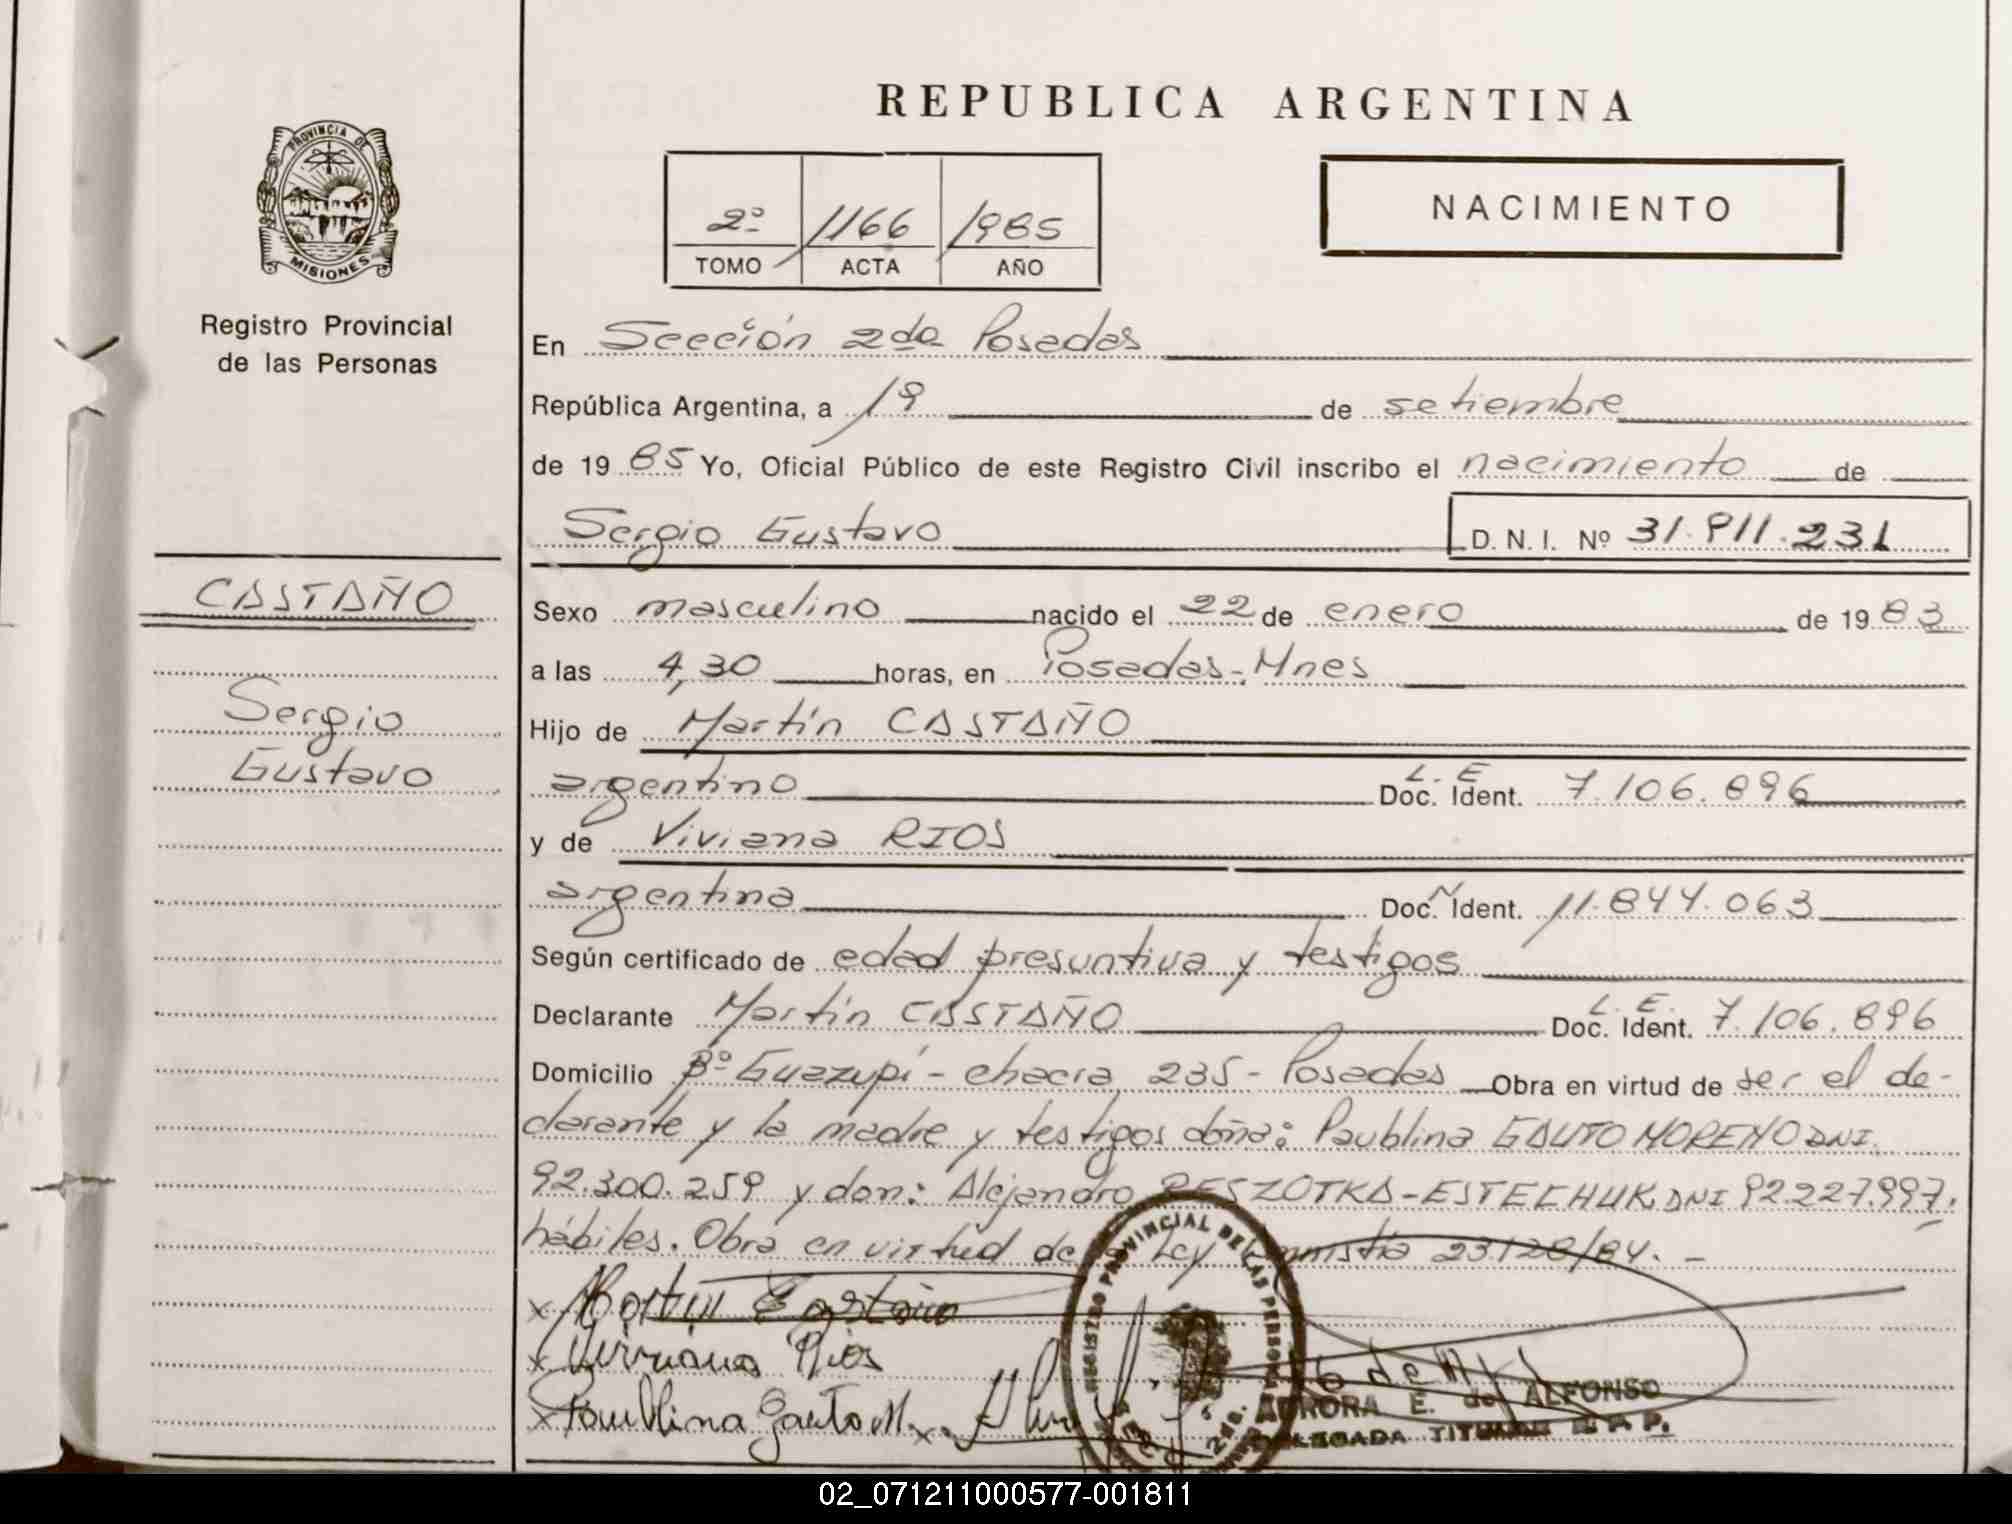 REPUBLICA ARGENTINA
PROVINCIA DE
MISIONES
Registro Provincial
de las Personas
2º 1166 1985
TOMO ACTA AÑO
NACIMIENTO
En Sección 2da Posadas
República Argentina, a 19 de setiembre
de 19 85 Yo, Oficial Público de este Registro Civil inscribo el nacimiento de
Sergio Gustavo D. N. I. Nº 31.911.231
CASTAÑO
Sergio
Gustavo
Sexo masculino nacido el 22 de enero de 19 83
a las 4,30 horas, en Posadas-Mnes
Hijo de Martín CASTAÑO
argentino L. E Doc. Ident. 7.106.896
y de Viviana RIOS
argentina Doc. Ident. 11.844.063
Según certificado de edad presuntiva y testigos
Declarante Martín CASTAÑO L. E. Doc. Ident. 7.106.896
Domicilio Bº Guazupí - chacra 235 - Posadas Obra en virtud de ser el de-
clarante y la madre y testigos doña: Paublina GAUTO MORENO DNI.
92.300.259 y don: Alejandro RESZOTKA-ESTECHUK DNI 92.227.997,
hábiles. Obra en virtud de la Ley Amnistía 23128/84. -
x Martin Castaño
x Viviana Rios
x Paublina Gauto M. x
REGISTRO PROVINCIAL DE LAS PERSONAS
AURORA E. de ALFONSO
DELEGADA TITULAR R.P.P.
02_071211000577-001811